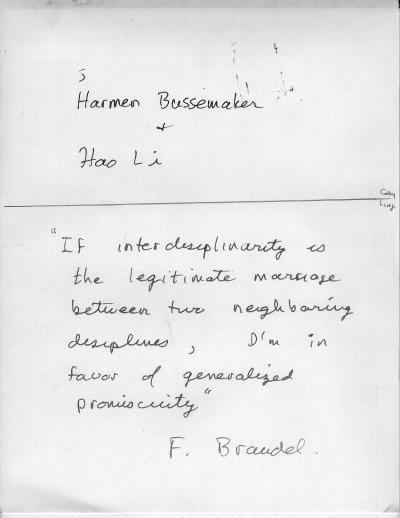 Harmen Bussemaker
+
Hao Li
"If interdisciplinarity is
the legitimate marriage
between two neighboring
desiplines, I'm in
favor of generalized
promiscuity"
F. Braudel.